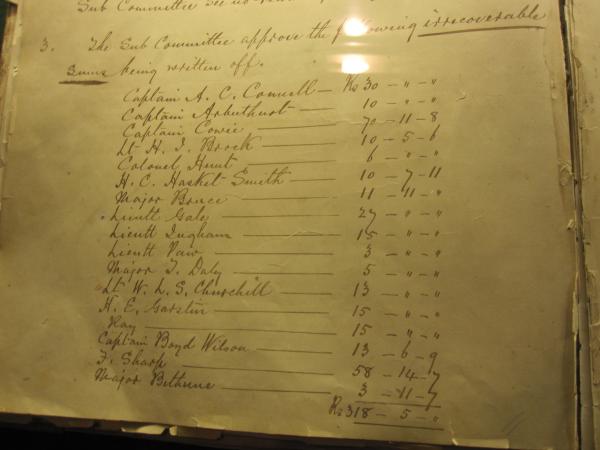 Sub Committee see no
3. The Sub Committee approve the following irrecoverable
Sums being written off.
Captain A. C. Connell — Rs 30 - " - "
Captain Arbuthnot — 10 - " - "
Captain Cowie — 70 - 11 - 8
Lt H. J. Brock — 10 - 5 - 6
Colonel Hunt — 6 - " - "
H. C. Hasket Smith — 10 - 7 - 11
Major Bruce — 11 - 11 - "
Lieutt Gale — 27 - " - "
Lieutt Ingham — 15 - " - "
Lieutt Vaw — 3 - " - "
Major T. Daly — 5 - " - "
Lt W. L. S. Churchill — 13 - " - "
H. E. Garstin — 15 - " - "
Ray — 15 - " - "
Captain Boyd Wilson — 13 - 6 - 9
F. Sharp — 58 - 14 - 7
Major Bethune — 3 - 11 - 7
Rs 318 - 5 - "